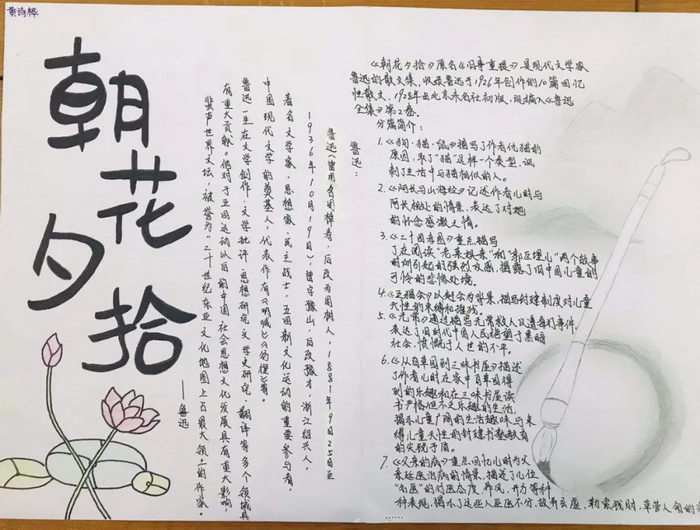 黄诗桦
朝花夕拾
——鲁迅
鲁迅：
鲁迅（曾用名周樟寿，后改名周树人，1881年9月25日至
1936年10月19日），曾字豫山，后改豫才，浙江绍兴人。
著名文学家、思想家、民主战士，五四新文化运动的重要参与者，
中国现代文学的奠基人。代表作有《呐喊》《彷徨》等。
鲁迅一生在文学创作、文学批评、思想研究、文学史研究、翻译等多个领域具
有重大贡献。他对于五四运动以后的中国社会思想文化发展具有重大影响，
蜚声世界文坛，被誉为“二十世纪东亚文化地图上占最大领土的作家。
《朝花夕拾》原名《旧事重提》是现代文学家
鲁迅的散文集，收录鲁迅于1926年创作的10篇回忆
性散文，1928年由北京未名社初版，现编入《鲁迅
全集》第2卷。
分篇简介：
1.《狗·猫·鼠》描写了作者仇猫的
原因，取了“猫”这样一个类型，讽
刺了生活中与猫相似的人。
2.《阿长与山海经》记述作者儿时与
阿长相处的情景，表达了对她
的怀念感激之情。
3.《二十四孝图》重点描写
了在阅读“老莱娱亲”和“郭巨埋儿”两个故事
时所引起的强烈反感，揭露了旧中国儿童的
可怜的悲惨处境。
4.《五猖会》以赶会为背景，描写封建制度对儿童
天性的束缚和摧残。
5.《无常》通过描写无常救人反遭毒打事件，
表达了旧时代中国人民绝望于黑暗
社会，愤慨于人世的不平。
6.《从百草园到三味书屋》描述
了作者儿时在家中百草园得
到的乐趣和在三味书屋读
书严格但不乏乐趣的生活，
揭示儿童广阔的生活趣味与束
缚儿童天性的封建书塾教育
的尖锐矛盾。
7.《父亲的病》重点回忆儿时为父
亲延医治病的情景，描述了几位
“名医”的行医态度、作风、开方等种
种表现，揭示了这些人巫医不分、故弄玄虚、勒索钱财、草菅人命的